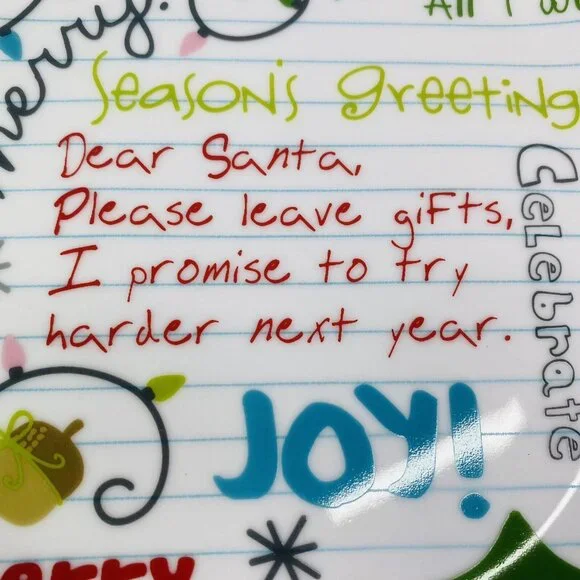 Merry!
All I
Season's greeting
Dear Santa,
Please leave gifts,
I promise to try
harder next year.
Celebrate
JOY!